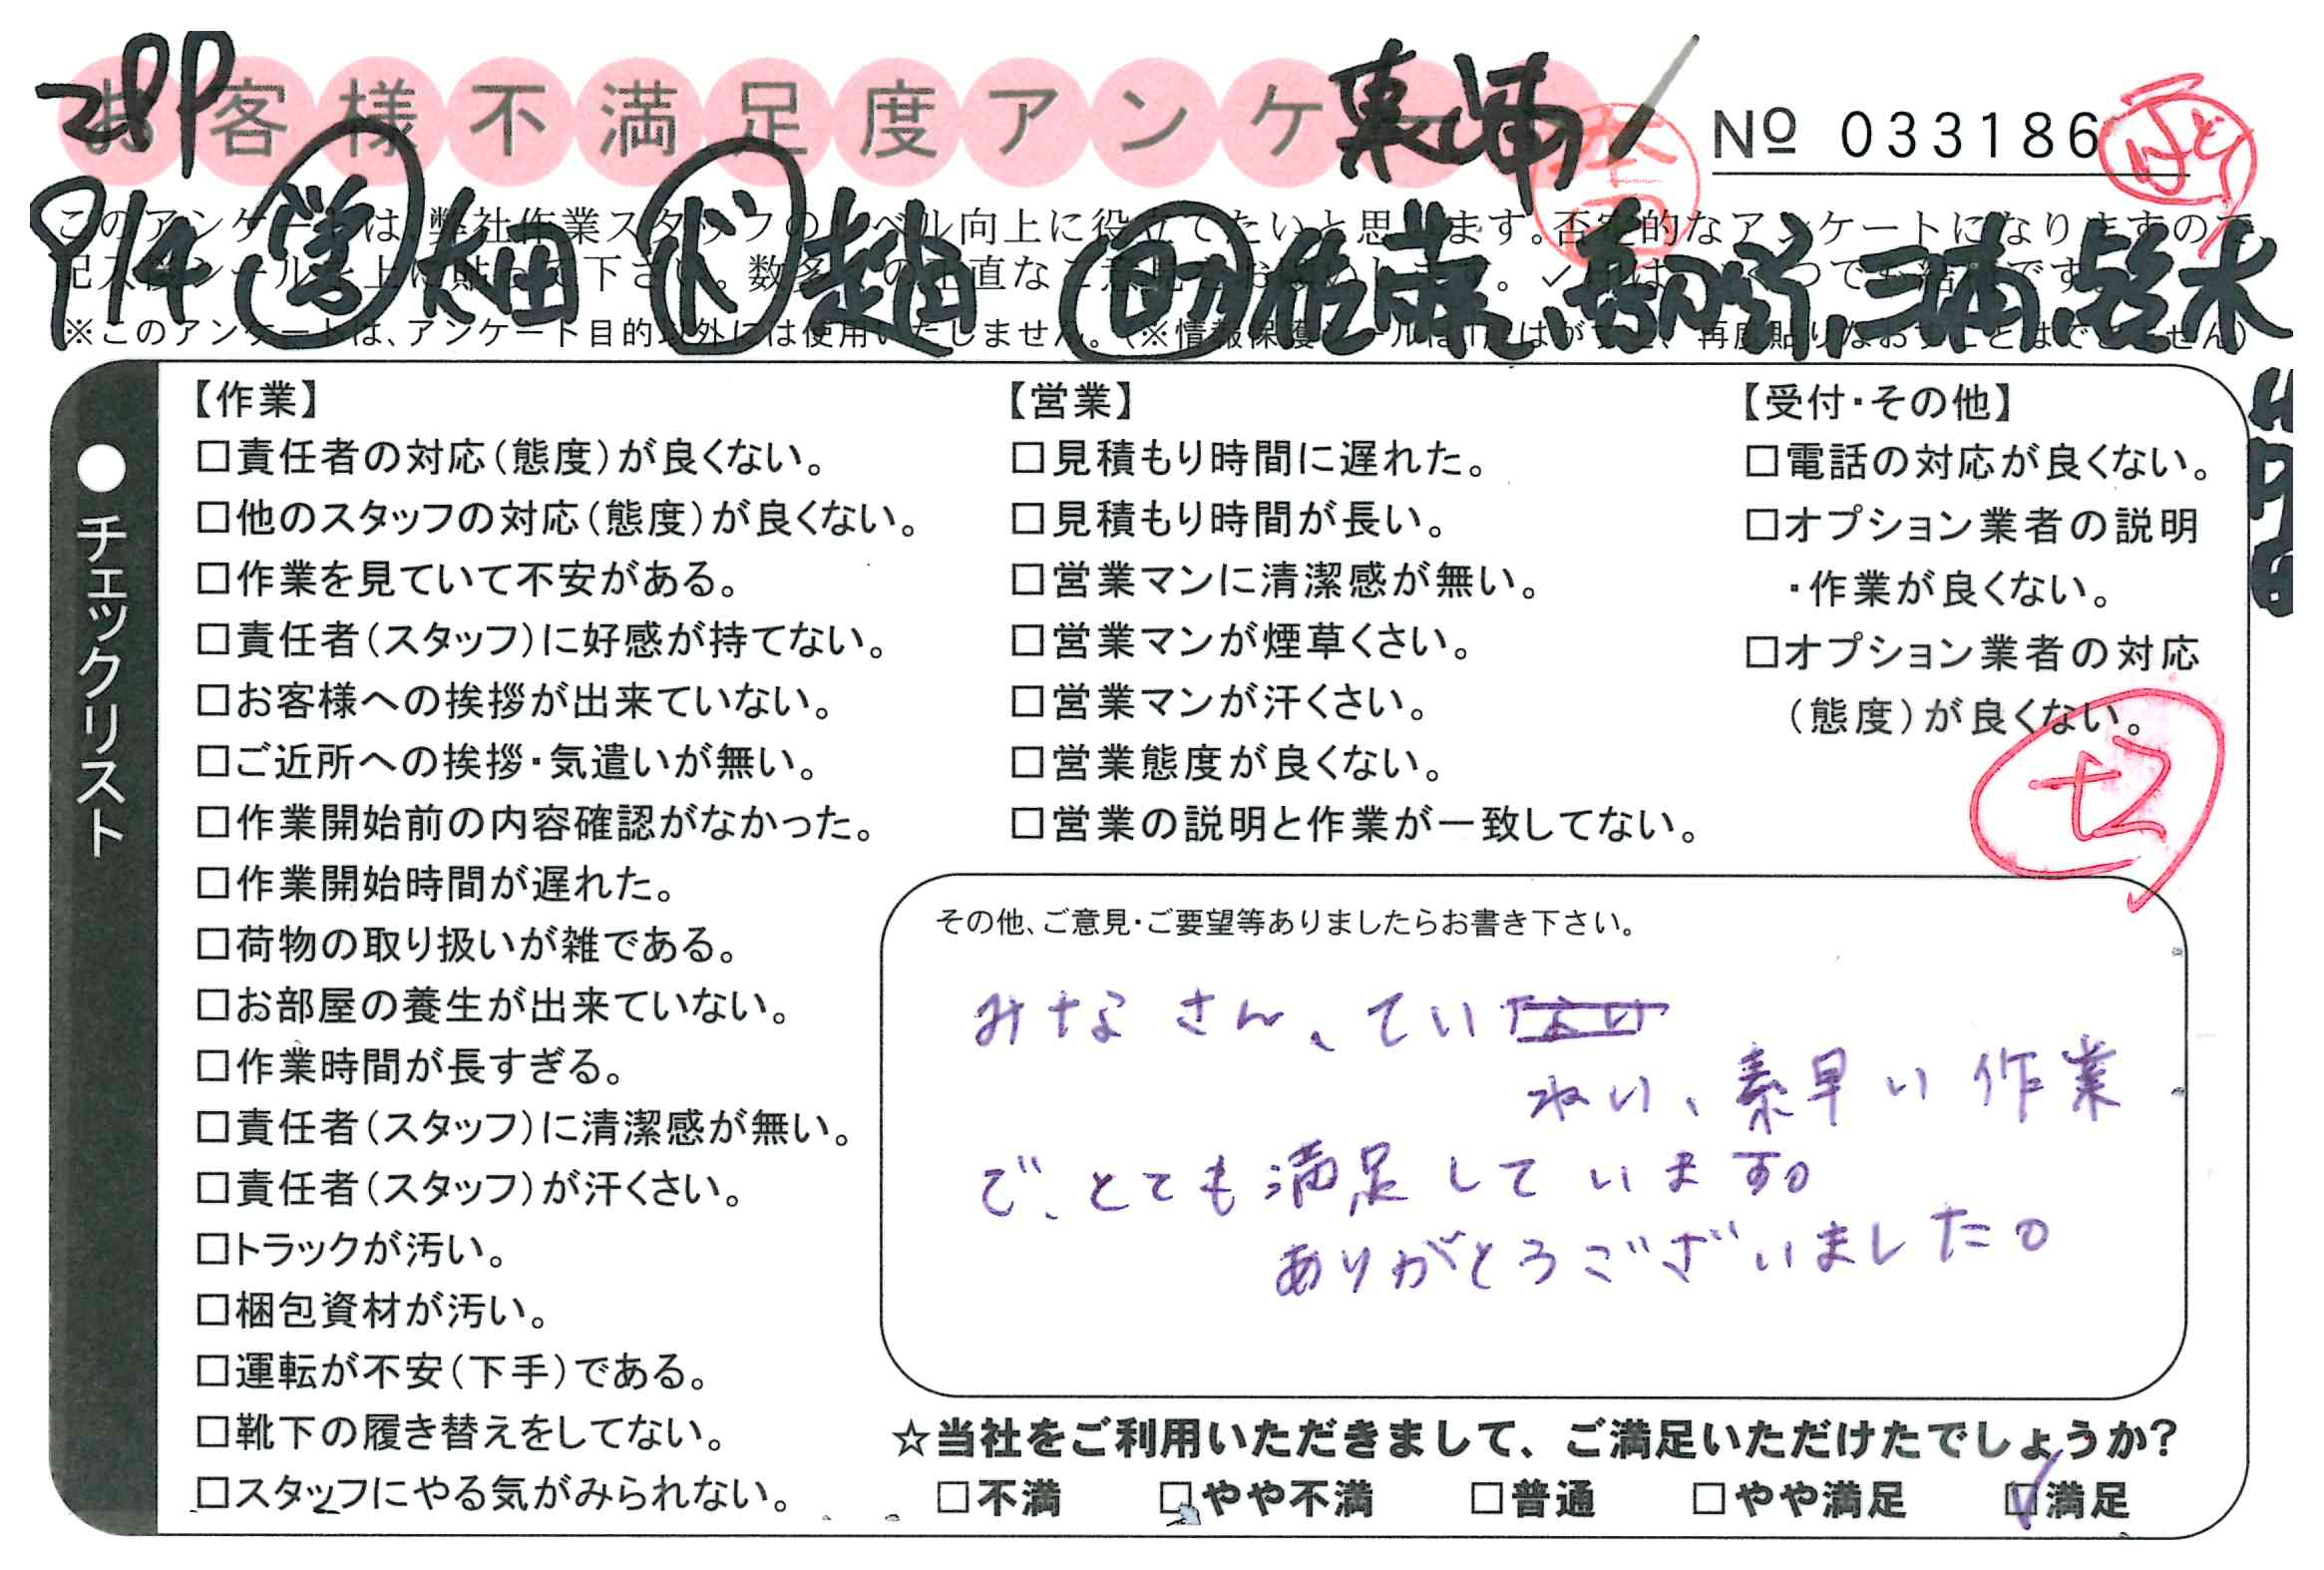 28P
お客様不満足度アンケート
東浦
No 033186
9/14 太田 ド 趙田 助 佐藤、高野、三浦、鈴木
このアンケートは、弊社作業スタッフのレベル向上に役立てたいと思います。否定的なアンケートになりますので
記入後シールを上に貼って下さい。数多くの正直なご意見をお願いします。✓点はいくつでも結構です。
※このアンケートは、アンケート目的以外には使用いたしません。（※情報保護シールは1度はがすと、再度貼りなおすことはできません）
HP
●チェックリスト
【作業】
□責任者の対応（態度）が良くない。
□他のスタッフの対応（態度）が良くない。
□作業を見ていて不安がある。
□責任者（スタッフ）に好感が持てない。
□お客様への挨拶が出来ていない。
□ご近所への挨拶・気遣いが無い。
□作業開始前の内容確認がなかった。
□作業開始時間が遅れた。
□荷物の取り扱いが雑である。
□お部屋の養生が出来ていない。
□作業時間が長すぎる。
□責任者（スタッフ）に清潔感が無い。
□責任者（スタッフ）が汗くさい。
□トラックが汚い。
□梱包資材が汚い。
□運転が不安（下手）である。
□靴下の履き替えをしてない。
□スタッフにやる気がみられない。
【営業】
□見積もり時間に遅れた。
□見積もり時間が長い。
□営業マンに清潔感が無い。
□営業マンが煙草くさい。
□営業マンが汗くさい。
□営業態度が良くない。
□営業の説明と作業が一致してない。
【受付・その他】
□電話の対応が良くない。
□オプション業者の説明
・作業が良くない。
□オプション業者の対応
（態度）が良くない。
その他、ご意見・ご要望等ありましたらお書き下さい。
みなさん、てい
ねい、素早い作業
で、とても満足しています。
ありがとうございました。
☆当社をご利用いただきまして、ご満足いただけたでしょうか？
□不満 □やや不満 □普通 □やや満足 ☑満足